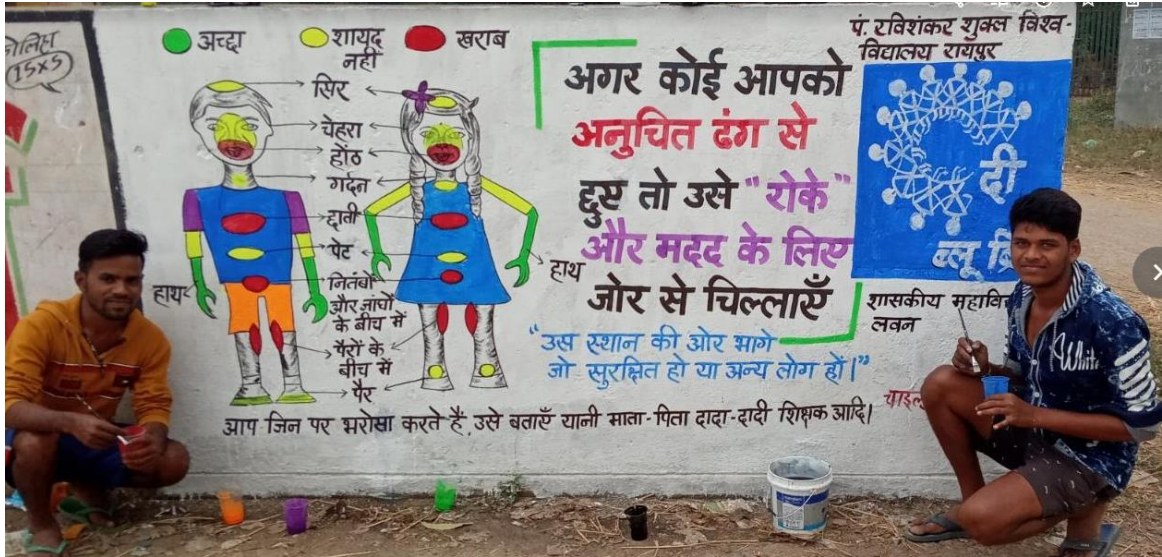 15x5
अच्छा
शायद
नहीं
खराब
सिर
चेहरा
होंठ
गर्दन
छाती
पेट
नितंबों
और जांघों
के बीच में
पैरों के
बीच में
पैर
हाथ
हाथ
अगर कोई आपको
अनुचित ढंग से
छुए तो उसे "रोके"
और मदद के लिए
जोर से चिल्लाएँ
"उस स्थान की ओर भागे
जो सुरक्षित हो या अन्य लोग हों।"
आप जिन पर भरोसा करते हैं, उसे बताएँ यानी माता-पिता दादा-दादी शिक्षक आदि।
पं. रविशंकर शुक्ल विश्व-
विद्यालय रायपुर
दी
ब्लू
शासकीय
लवन
White